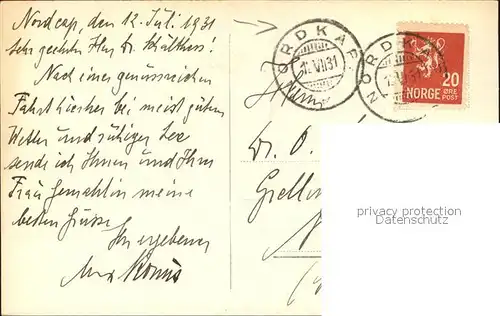 Nordcap, den 12. Juli 1931
Sehr geehrter Herr Dr. Schulthess!
Nach einer genussreichen
Fahrt hierher bei meist gutem
Wetter und ruhiger See
sende ich Ihnen und Ihrer
Frau Gemahlin meine
besten Grüsse
Ihr ergebener
Max
NORDKAP
VII 31
NORDKAP
VII 31
20
NORGE ØRE
POST
Herrn
Dr. O.
privacy protection
Datenschutz